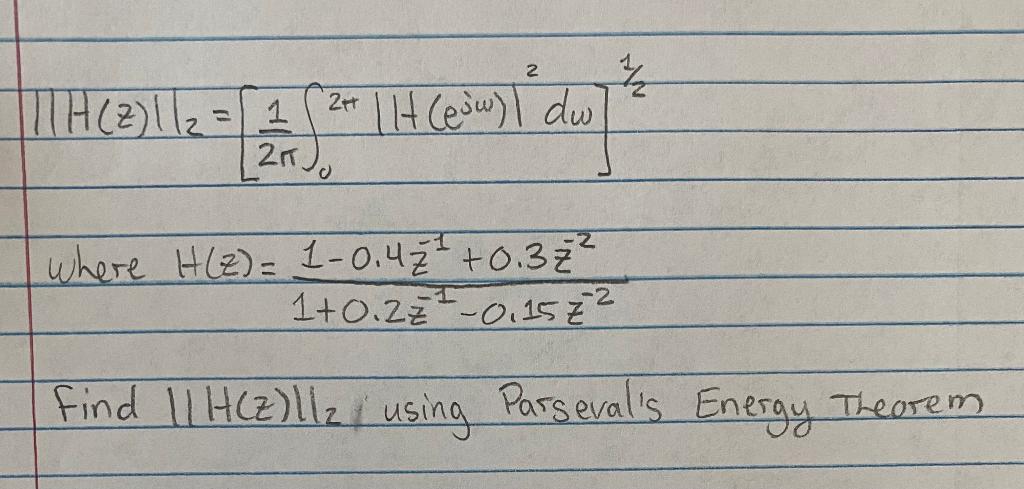 ||H(z)||₂ = [1/2π ∫₀^2π |H(e^jω)|² dω]^1/2
where H(z) = (1-0.4z⁻¹ + 0.3z⁻²)/(1+0.2z⁻¹ - 0.15z⁻²)
Find ||H(z)||₂ using Parseval's Energy Theorem